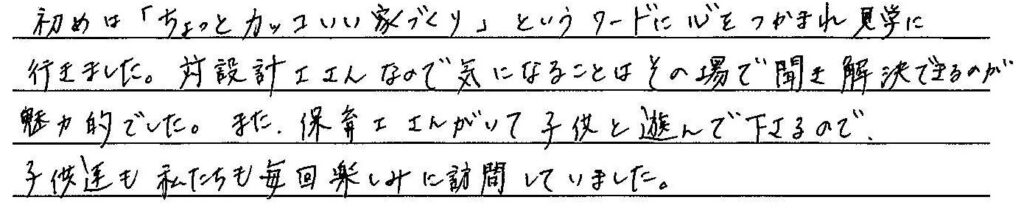 初めは「ちょっとカッコいい家づくり」というワードに心をつかまれ見学に
行きました。対設計士さんなので気になることはその場で聞き解決できるのが
魅力的でした。また、保育士さんがいて子供と遊んで下さるので、
子供達も私たちも毎回楽しみに訪問していました。